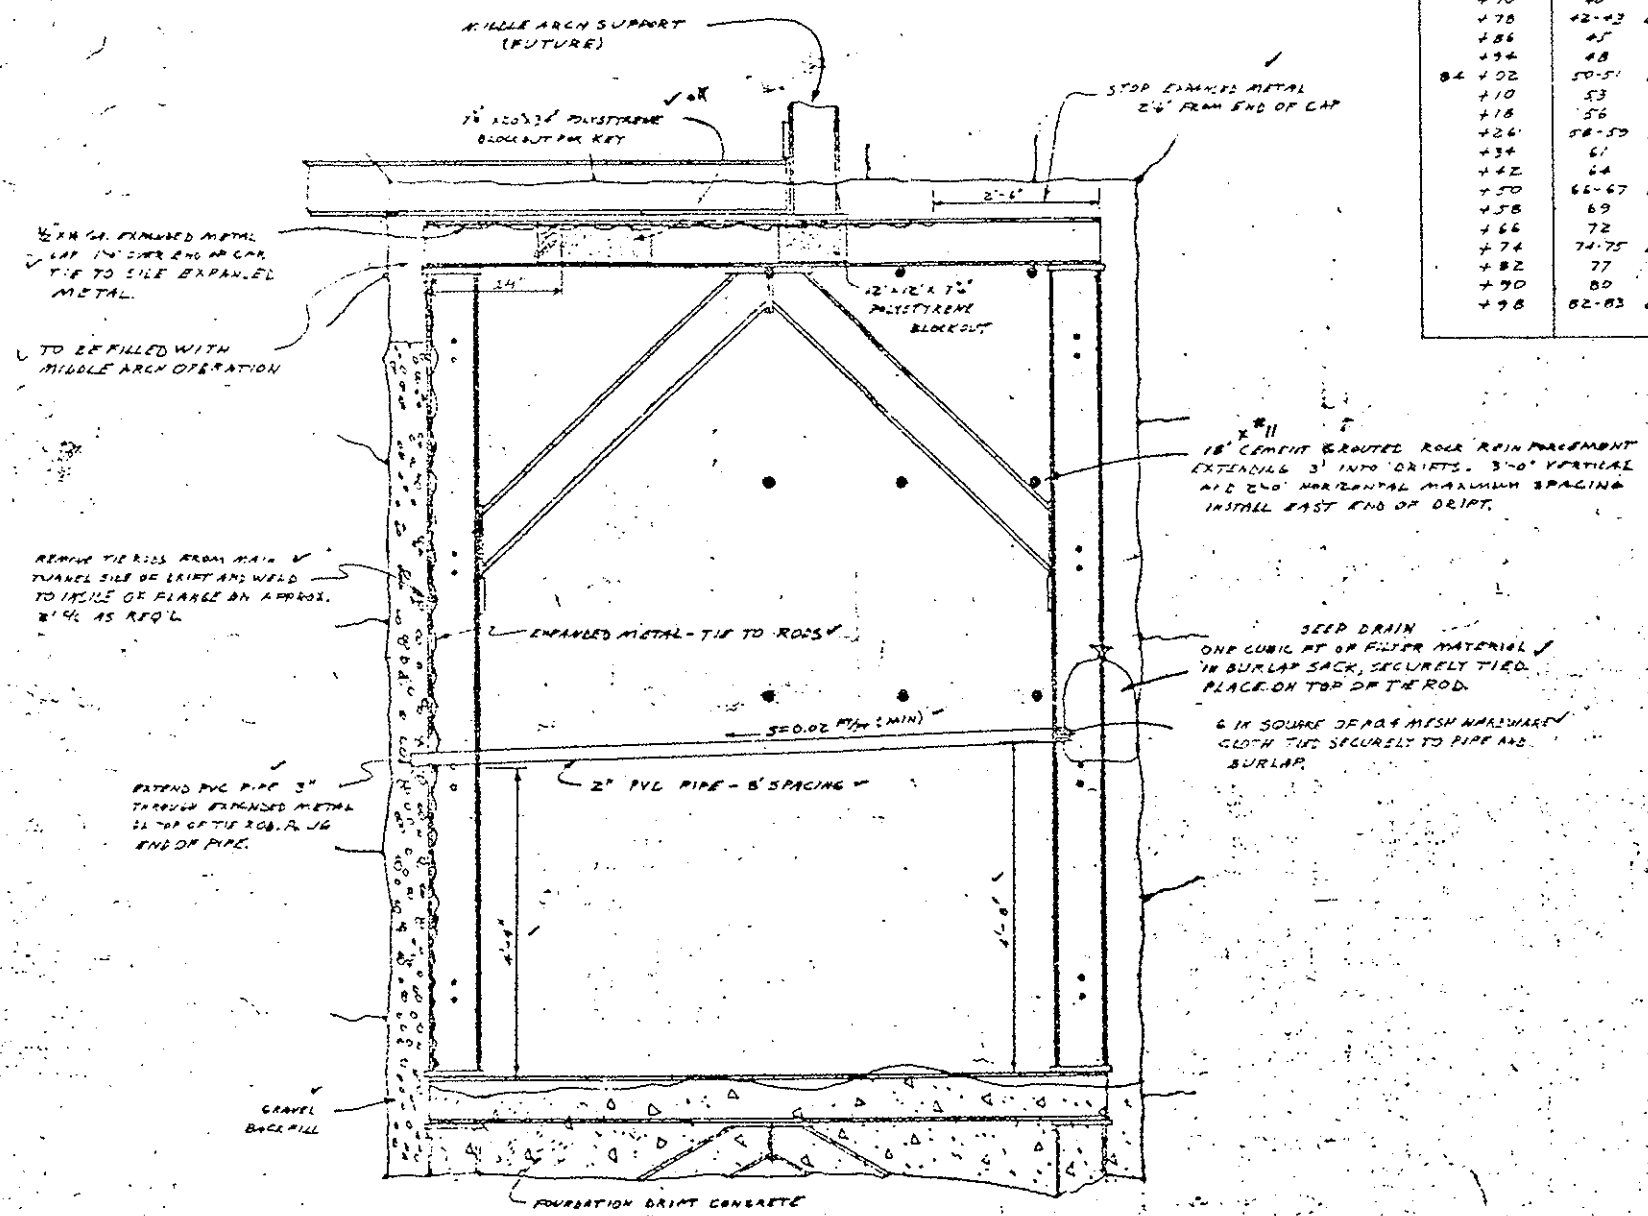 MIDDLE ARCH SUPPORT
(FUTURE)
STOP EXPANDED METAL
2'6" FROM END OF CAP
POLYSTYRENE
BLOCKOUT FOR KEY
2'-6"
EXPANDED METAL
LAP OVER END OF CAP
TIE TO SIDE EXPANDED
METAL.
24"
12"x12"x 7½"
POLYSTYRENE
BLOCKOUT
TO BE FILLED WITH
MIDDLE ARCH OPERATION
x #11
18' CEMENT GROUTED ROCK REINFORCEMENT
EXTENDING 3' INTO DRIFTS. 3'-0" VERTICAL
AND 2'-0" HORIZONTAL MAXIMUM SPACING
INSTALL EAST END OF DRIFT.
REMOVE TIE RODS FROM MAIN
TUNNEL SIDE OF DRIFT AND WELD
TO INSIDE OF FLANGE ON APPROX.
2' % AS REQ'D
EXPANDED METAL - TIE TO RODS
SEEP DRAIN
ONE CUBIC FT OF FILTER MATERIAL
IN BURLAP SACK, SECURELY TIED.
PLACE ON TOP OF TIE ROD.
S=0.02 FT/FT (MIN)
6 IN SQUARE OF NO.4 MESH HARDWARE
CLOTH TIED SECURELY TO PIPE AND
BURLAP.
2" PVC PIPE - 8' SPACING
EXTEND PVC PIPE 3"
THROUGH EXPANDED METAL
ON TOP OF TIE ROD. PLUG
END OF PIPE.
4'-4"
4'-8"
GRAVEL
BACKFILL
FOUNDATION DRIFT CONCRETE
+78 42-43
+86 45
+94 48
84 +02 50-51
+10 53
+18 56
+26 58-59
+34 61
+42 64
+50 66-67
+58 69
+66 72
+74 74-75
+82 77
+90 80
+98 82-83